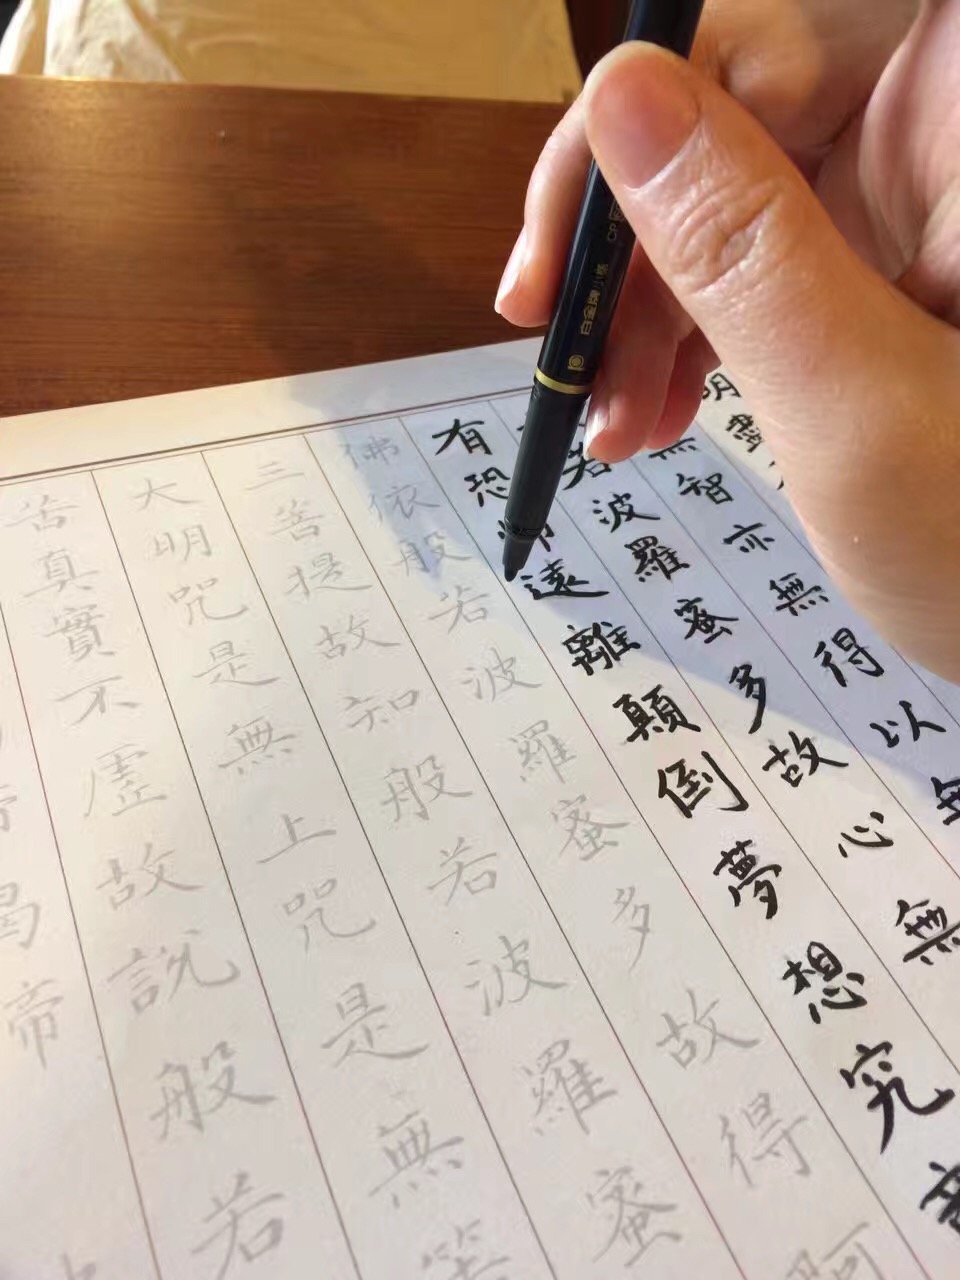 明盡
無智亦無得以無
若波羅蜜多故心無
有恐怖遠離顛倒夢想究竟
佛依般若波羅蜜多故得阿
三菩提故知般若波羅蜜
大明咒是無上咒是無等
苦真實不虛故說般若
帝揭帝
白金牌小楷 CP